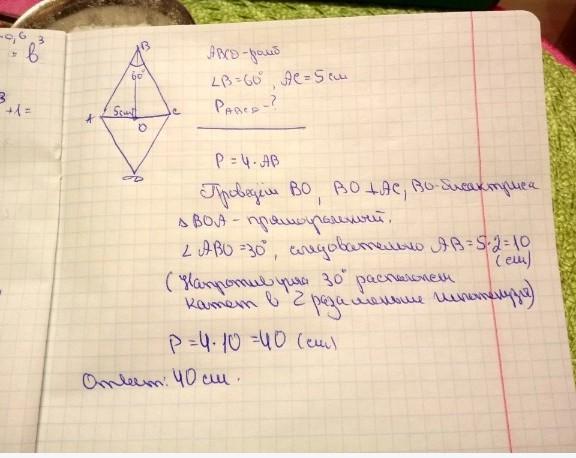 -0,6 3
= b
3
+1=
B
60°
5см
A
C
O
D
ABCD - ромб
∠B=60°, AC=5см
P ABCD - ?
P = 4·AB
Проведём BO, BO⊥AC, BO-биссектриса
△BOA - прямоугольный.
∠ABO=30°, следовательно AB=5·2=10
(см)
(Напротив угла 30° расположен
катет в 2 раза меньше гипотенузы)
P=4·10=40 (см)
Ответ: 40 см.